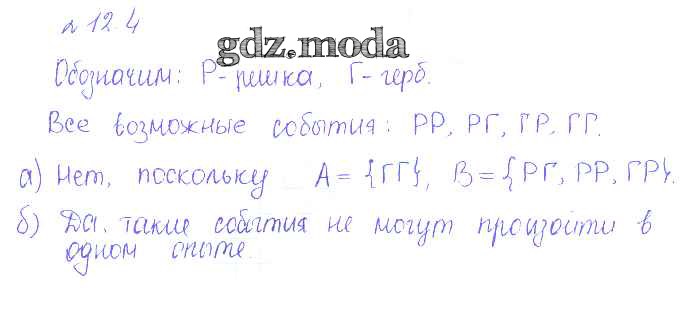 № 12.4
gdz.moda
Обозначим: Р-решка, Г-герб.
Все возможные события: РР, РГ, ГР, ГГ.
а) Нет, поскольку А = {ГГ}, В = {РГ, РР, ГР}.
б) Да. такие события не могут произойти в
одном опыте.